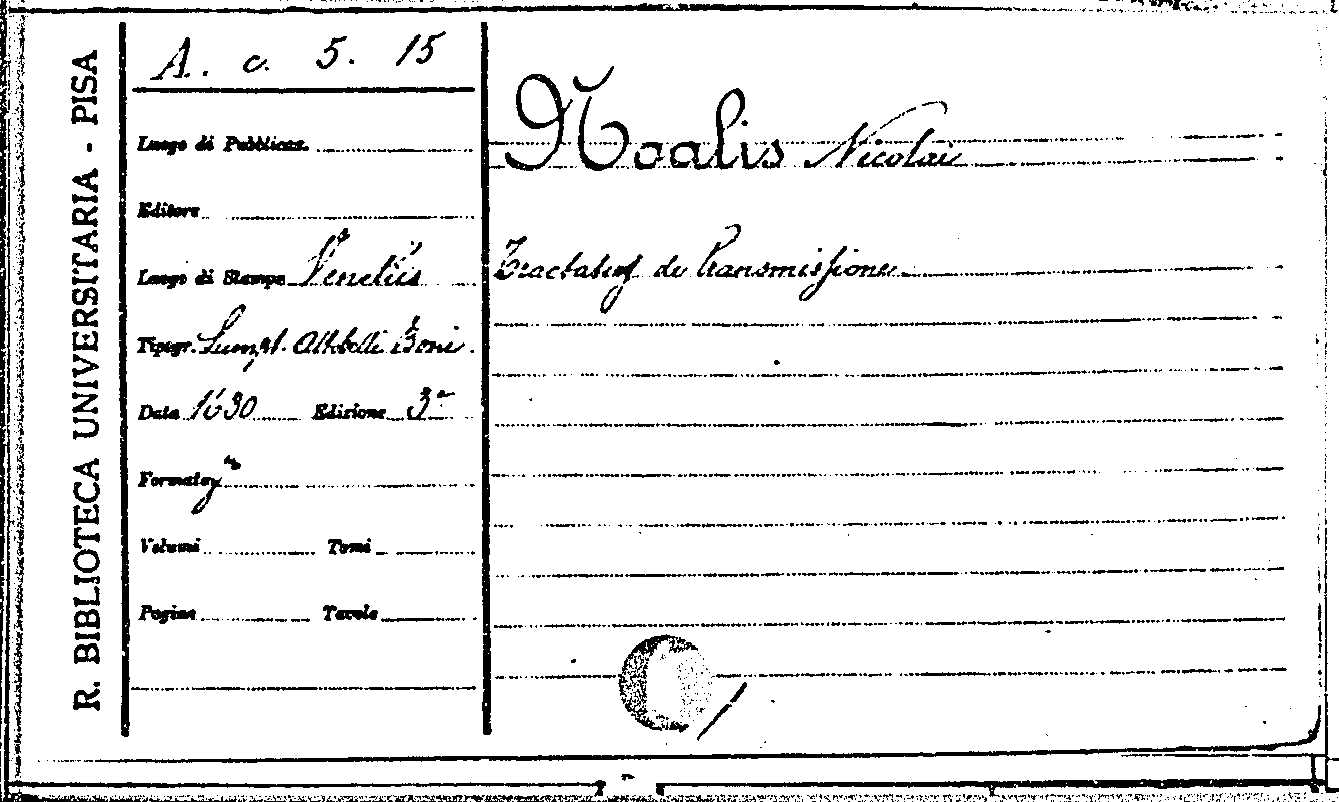 R. BIBLIOTECA UNIVERSITARIA - PISA
A. c. 5. 15
Luogo di Pubblicaz.
Editore
Luogo di Stampa Venetiis
Tipogr. Sumpt. Boni
Data 1630 Edizione 3ª
Formato
Volumi Tomi
Pagine Tavole
Noalis Nicolai
Tractatus de transmissione